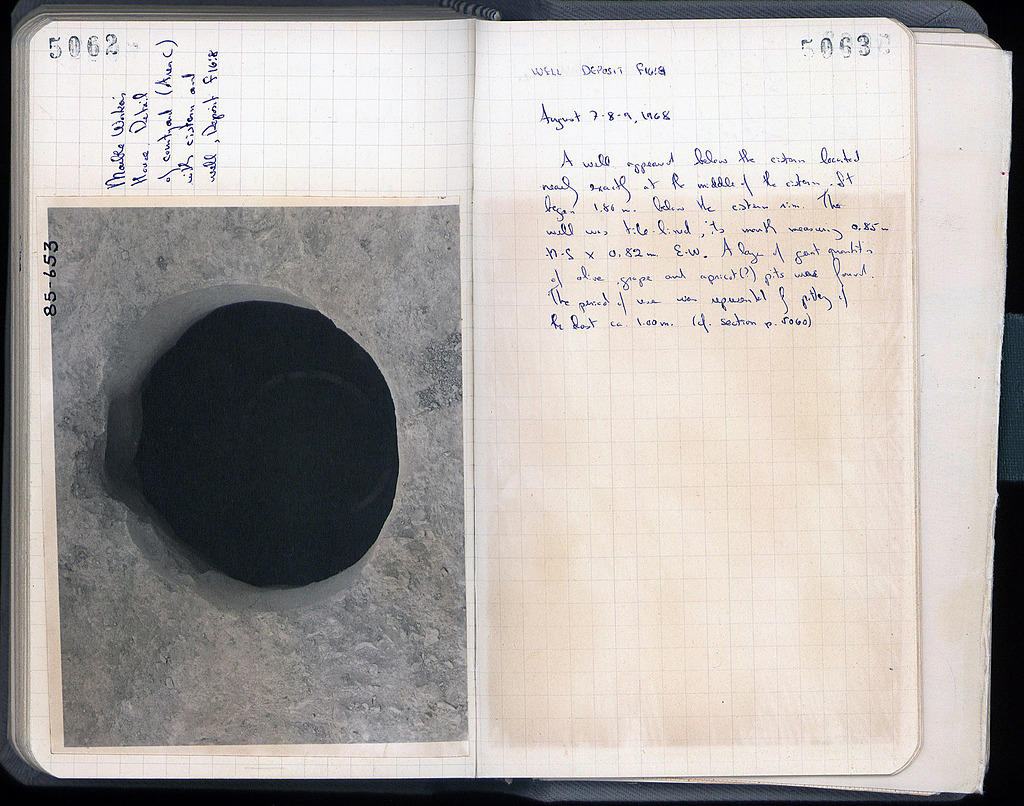 5062
Marble Workers
House. Detail
of courtyard (Area C)
with cistern and
well, Deposit F16:8
85-653
5063
WELL DEPOSIT F16:8
August 7-8-9, 1968
A well appeared below the cistern located
nearly exactly at the middle of the cistern. It
began 1.86 m. below the cistern rim. The
well was tile-lined, its mouth measuring 0.85 m
N-S x 0.82 m E-W. A layer of great quantities
of olive, grape and apricot(?) pits was found.
The period of use was represented by pottery of
the last ca. 1.00 m. (cf. section p. 5060)